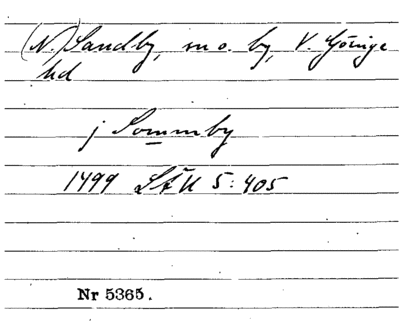 (N.) Sandby, sn o. by, V. Göinge
hd
j Sommby
1499 LÄU 5:405
Nr 5365.